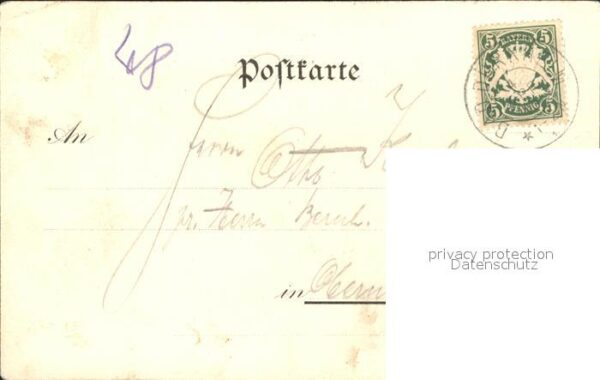 48
Postkarte
5 BAYERN 5
5 PFENNIG 5
An
Herrn
Otto
pr. Herrn
in Obern
privacy protection
Datenschutz